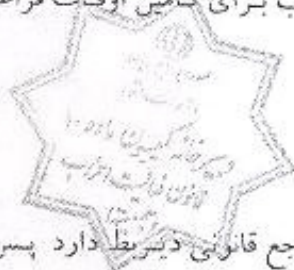 ب برای تأمین اوقات فراغ
دبیرخانه کمیسیون ماده ۱۰
قانون فعالیت احزاب
جع قانونی ذیربط دارد پسر